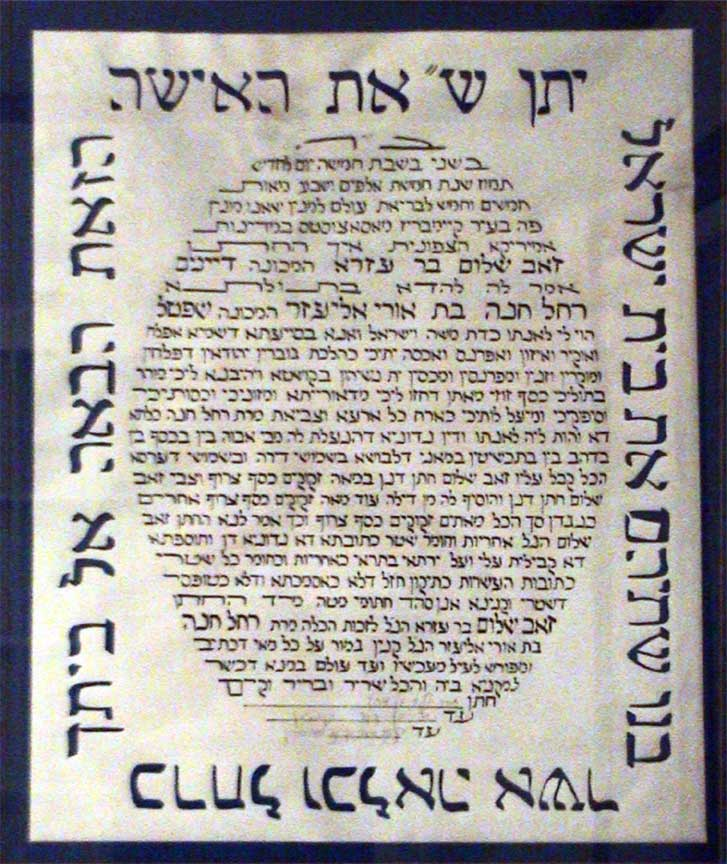 יתן ש״ את האישה
הזאת הבאה אל ביתך
כרחל וכלאה אשר
בנו שתיהם את בית ישראל
בשני בשבת חמישה יום לחדש
תמוז שנת חמשת אלפים ושבע מאות
חמשים וחמש לבריאת עולם למנין שאנו מונין
פה בעיר קיימברידז מאסאצוסטס במדינות
אמיריקא הצפונית איך החתן
זאב שלום בר עזרא המכונה דיינים
אמר לה להדא בתולתא
רחל חנה בת אורי אליעזר המכונה
הוי לי לאנתו כדת משה וישראל ואנא בסייעתא דשמיא אפלח
ואוקיר ואיזון ואפרנס ואכסה יתיכי כהלכת גוברין יהודאין דפלחין
ומוקרין וזנין ומפרנסין ומכסין ית נשיהון בקושטא ויהבנא ליכי מוהר
בתוליכי כסף זוזי מאתן דחזו ליכי מדאורייתא ומזוניכי וכסותיכי
וסיפוקיכי ומיעל לותיכי כארח כל ארעא וצביאת מרת רחל חנה כלתא
דא והות ליה לאנתו ודין נדוניא דהנעלת לה מבי אבוה בין בכסף בין
בדהב בין בתכשיטין במאני דלבושא בשמושי דירה ובשמושי דערסא
הכל קבל עליו זאב שלום חתן דנן במאה זקוקים כסף צרוף וצבי זאב
שלום חתן דנן והוסיף לה מן דילה עוד מאה זקוקים כסף צרוף אחרים
כנגדן סך הכל מאתים זקוקים כסף צרוף וכך אמר לנא החתן זאב
שלום הנל אחריות וחומר שטר כתובתא דא נדוניא דן ותוספתא
דא קבילית עלי ועל ירתאי בתראי כאחריות וכחומר כל שטרי
כתובות העשויות כתיקון חזל דלא כאסמכתא ודלא כטופסי
דשטרי וקנינא אנן סהדי חתומי מטה מיד החתן
זאב שלום בר עזרא הנל לזכות הכלה מרת רחל חנה
בת אורי אליעזר הנל קנין גמור על כל מאי דכתיב
ומפורש לעיל מעכשיו ועד עולם במנא דכשר
למקניא ביה והכל שריר ובריר וקים
חתן
עד
עד